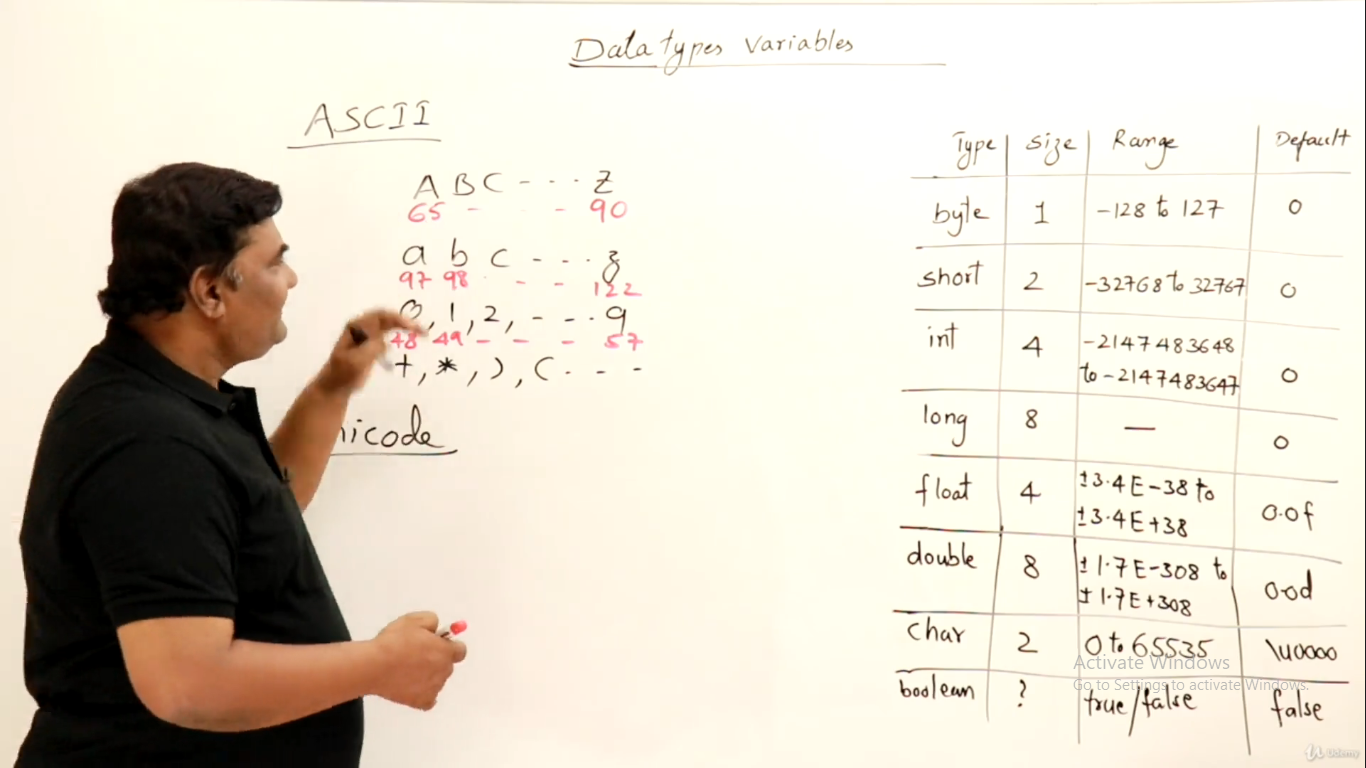 Data types Variables
ASCII
A B C - - - Z
65 - - - 90
a b c - - - z
97 98 - - - 122
0, 1, 2, - - - 9
48 49 - - - 57
+, *, ), ( - - -
nicode
Type Size Range Default
byte 1 -128 to 127 0
short 2 -32768 to 32767 0
int 4 -2147483648
to -2147483647 0
long 8 — 0
float 4 ±3.4E-38 to
±3.4E+38 0.0f
double 8 ±1.7E-308 to
±1.7E+308 0.0d
char 2 0 to 65535 \u0000
Activate Windows
Go to Settings to activate Windows.
boolean ? true/false false
Udemy